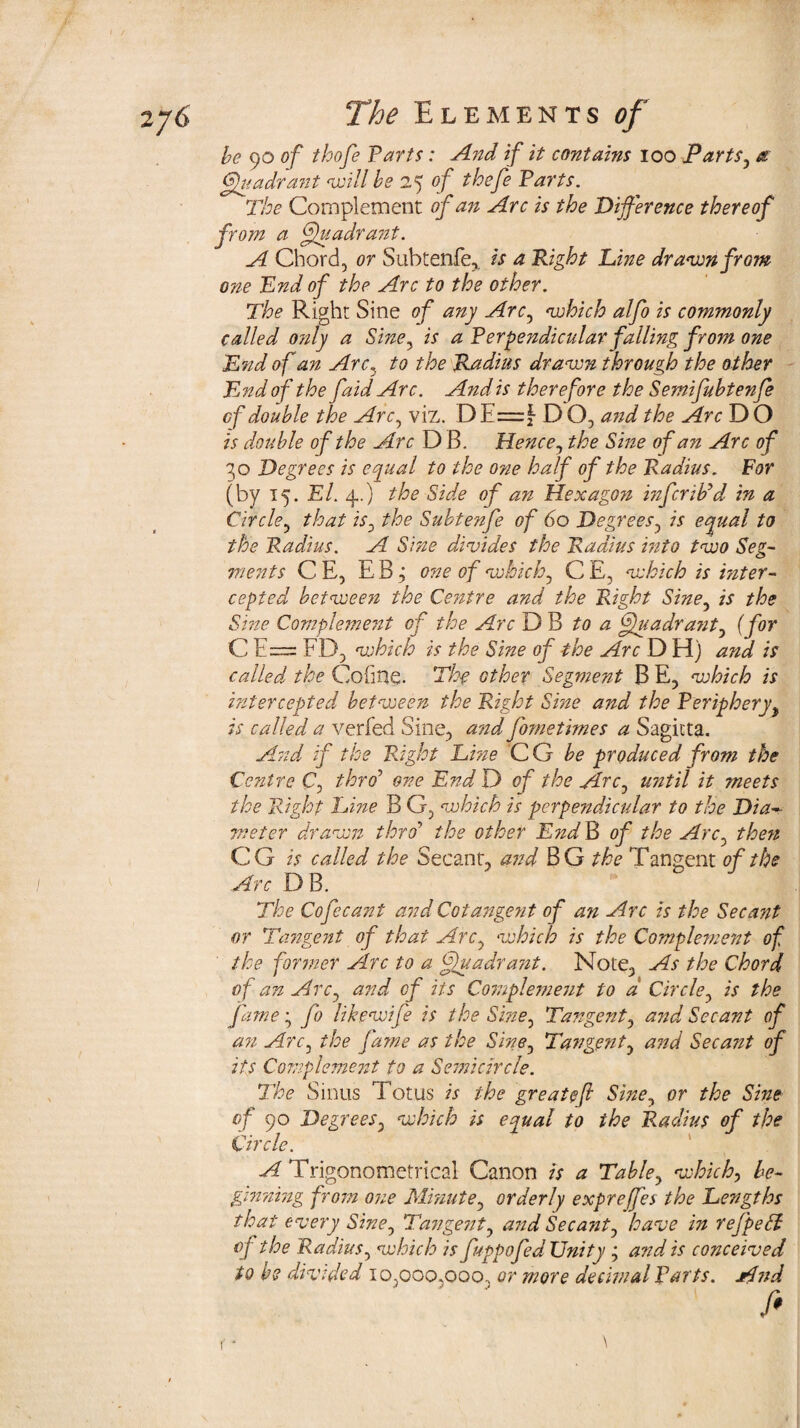 276 The ELEMENTS of
be 90 of thoſe Parts: And if it contains 100 Parts, a
Quadrant will be 25 of theſe Parts.
The Complement of an Arc is the Difference thereof
from a Quadrant.
A Chord, or Subtenſe, is a Right Line drawn from
one End of the Arc to the other.
The Right Sine of any Arc, which alſo is commonly
called only a Sine, is a Perpendicular falling from one
End of an Arc, to the Radius drawn through the other
End of the ſaid Arc. And is therefore the Semiſubtenſe
of double the Arc, viz. DE=½ DO, and the Arc DO
is double of the Arc DB. Hence, the Sine of an Arc of
30 Degrees is equal to the one half of the Radius. For
(by 15. El. 4.) the Side of an Hexagon inſcrib'd in a
Circle, that is, the Subtenſe of 60 Degrees, is equal to
the Radius. A Sine divides the Radius into two Seg-
ments CE, EB; one of which, CE, which is inter-
cepted between the Centre and the Right Sine, is the
Sine Complement of the Arc DB to a Quadrant, (for
CE= FD, which is the Sine of the Arc DH) and is
called the Coſine. The other Segment BE, which is
intercepted between the Right Sine and the Periphery,
is called a verſed Sine, and ſometimes a Sagitta.
And if the Right Line CG be produced from the
Centre C, thro' one End D of the Arc, until it meets
the Right Line BG, which is perpendicular to the Dia-
meter drawn thro' the other End B of the Arc, then
CG is called the Secant, and BG the Tangent of the
Arc DB.
The Coſecant and Cotangent of an Arc is the Secant
or Tangent of that Arc, which is the Complement of
the former Arc to a Quadrant. Note, As the Chord
of an Arc, and of its Complement to a Circle, is the
ſame; ſo likewiſe is the Sine, Tangent, and Secant of
an Arc, the ſame as the Sine, Tangent, and Secant of
its Complement to a Semicircle.
The Sinus Totus is the greateſt Sine, or the Sine
of 90 Degrees, which is equal to the Radius of the
Circle.
A Trigonometrical Canon is a Table, which, be-
ginning from one Minute, orderly expreſſes the Lengths
that every Sine, Tangent, and Secant, have in reſpect
of the Radius, which is ſuppoſed Unity; and is conceived
to be divided 10,000,000, or more decimal Parts. And
ſo